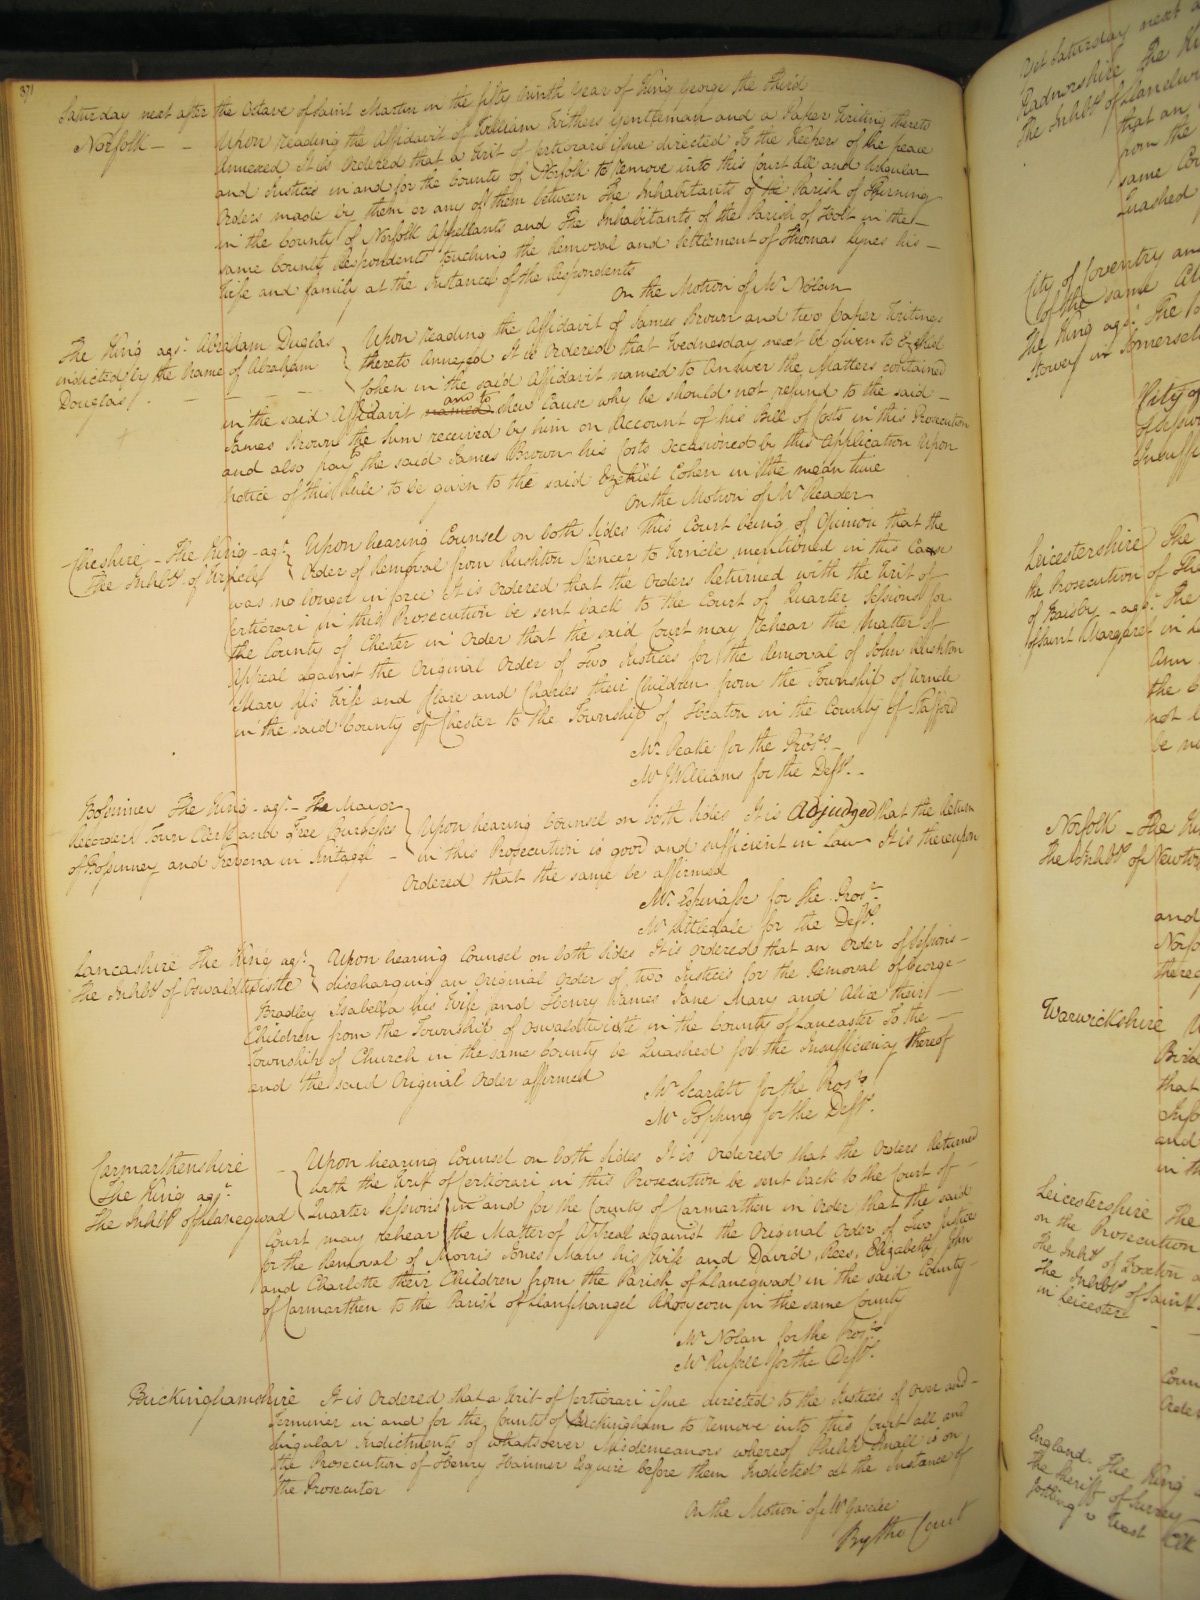 371
Saturday next after the Octave of Saint Martin in the fifty ninth Year of King George the Third
Norfolk — - Upon reading the Affidavit of William Withers Gentleman and a Paper Writing thereto
Annexed It is Ordered that a Writ of Certiorari issue directed To the Keepers of the peace
and Justices in and for the County of Norfolk to remove into this Court all and singular
Orders made by them or any of them between The Inhabitants of the Parish of
in the County of Norfolk Appellants and The Inhabitants of the Parish of Holt in the —
same County Respondents touching the Removal and Settlement of Thomas Lynes his —
Wife and family at the Instance of the Respondents
On the Motion of Mr. Nolan
The King agst. Abraham Duglas
indicted by the Name of Abraham
Douglas
Upon reading the Affidavit of James Brown and two paper Writings
thereto Annexed It is Ordered that Wednesday next be given to Ezekiel
Cohen in the said Affidavit named to Answer the Matters contained
in the said Affidavit named and to shew Cause why he should not refund to the said —
James Brown the sum received by him on Account of his Bill of Costs in this Prosecution
and also pay the said James Brown his Costs Occasioned by this Application Upon
notice of this Rule to be given to the said Ezekiel Cohen in the mean time
On the Motion of Mr. Reader
Cheshire - The King - agst.
The Inhabts. of Wincle
Upon hearing Counsel on both Sides This Court being of Opinion that the
Order of Removal from Rushton Spencer to Wincle mentioned in this Case
was no longer in force It is Ordered that the Orders Returned with the Writ of
Certiorari in this Prosecution be sent back to the Court of Quarter Sessions for
the County of Chester in Order that the said Court may rehear the Matter of
Appeal against the Original Order of Two Justices for the Removal of John Rushton
Mary his Wife and Clare and Charles their Children from the Township of Wincle
in the said County of Chester to the Township of Heaton in the County of Stafford
Mr. Peake for the Prosr.
Mr. J Williams for the Deft.
Bossiney The King - agst. - The Mayor
Recorder Town Clerk and Free Burgesses
of Bossiney and Trevena in Tintagel -
Upon hearing Counsel on both Sides It is Adjudged that the Return
in this Prosecution is good and sufficient in Law It is thereupon
Ordered that the same be affirmed
Mr. Espinasse for the Prosr.
Mr. Littledale for the Deft.
Lancashire The King agst.
The Inhabts. of Oswaldtwistle
Upon hearing Counsel on both Sides It is Ordered that an Order of Sessions -
discharging an Original Order of two Justices for the Removal of George -
Bradley Isabella his Wife and Henry James Jane Mary and Alice their —
Children from the Township of Oswaldtwistle in the County of Lancaster To the —
Township of Church in the same County be Quashed for the Insufficiency thereof
and the said Original Order affirmed
Mr. Scarlett for the Prosr.
Mr. Topping for the Deft.
Carmarthenshire
The King agst.
The Inhabts. of Llanegwad
Upon hearing Counsel on both Sides It is Ordered that the Orders Returned
with the Writ of Certiorari in this Prosecution be sent back to the Court of -
Quarter Sessions in and for the County of Carmarthen in Order that the said
Court may rehear the Matter of Appeal against the Original Order of Two Justices
for the Removal of Morris Jones Mary his Wife and David, Rees, Elizabeth John
and Charlotte their Children from the Parish of Llanegwad in the said County -
of Carmarthen to the Parish of Llanfihangel Rhosycorn in the same County
Mr. Nolan for the Prosr.
Mr. Russell for the Deft.
Buckinghamshire It is Ordered that a Writ of Certiorari issue directed to the Justices of Oyer and -
Terminer in and for the County of Buckingham to remove into this Court all and
singular Indictments of whatsoever Misdemeanors whereof Philip Small is on
the Prosecution of Henry Hanmer Esquire before them Indicted at the Instance of
the Prosecutor
On the Motion of Mr Gaselee
By the Court
Yet Saturday next
Radnorshire The
The Inhabts. of
that an
from the
same
Quashed
City of Coventry and
of the same
The King agst. The
in Somerset
City of
of Sessions
Insuffi
Leicestershire The
the Prosecution of The
of - agst. The
of Saint Margaret in
Ann
the
not
be
Norfolk - The
The Inhabts. of
and
Norfo
thereo
Warwickshire
Bird
that
Info
and
in th
Leicestershire The
on the Prosecution
The Inhabts. of
The Inhabts. of Saint
in Leicester
Coun
Order
England. The King
The Sheriff of Surrey